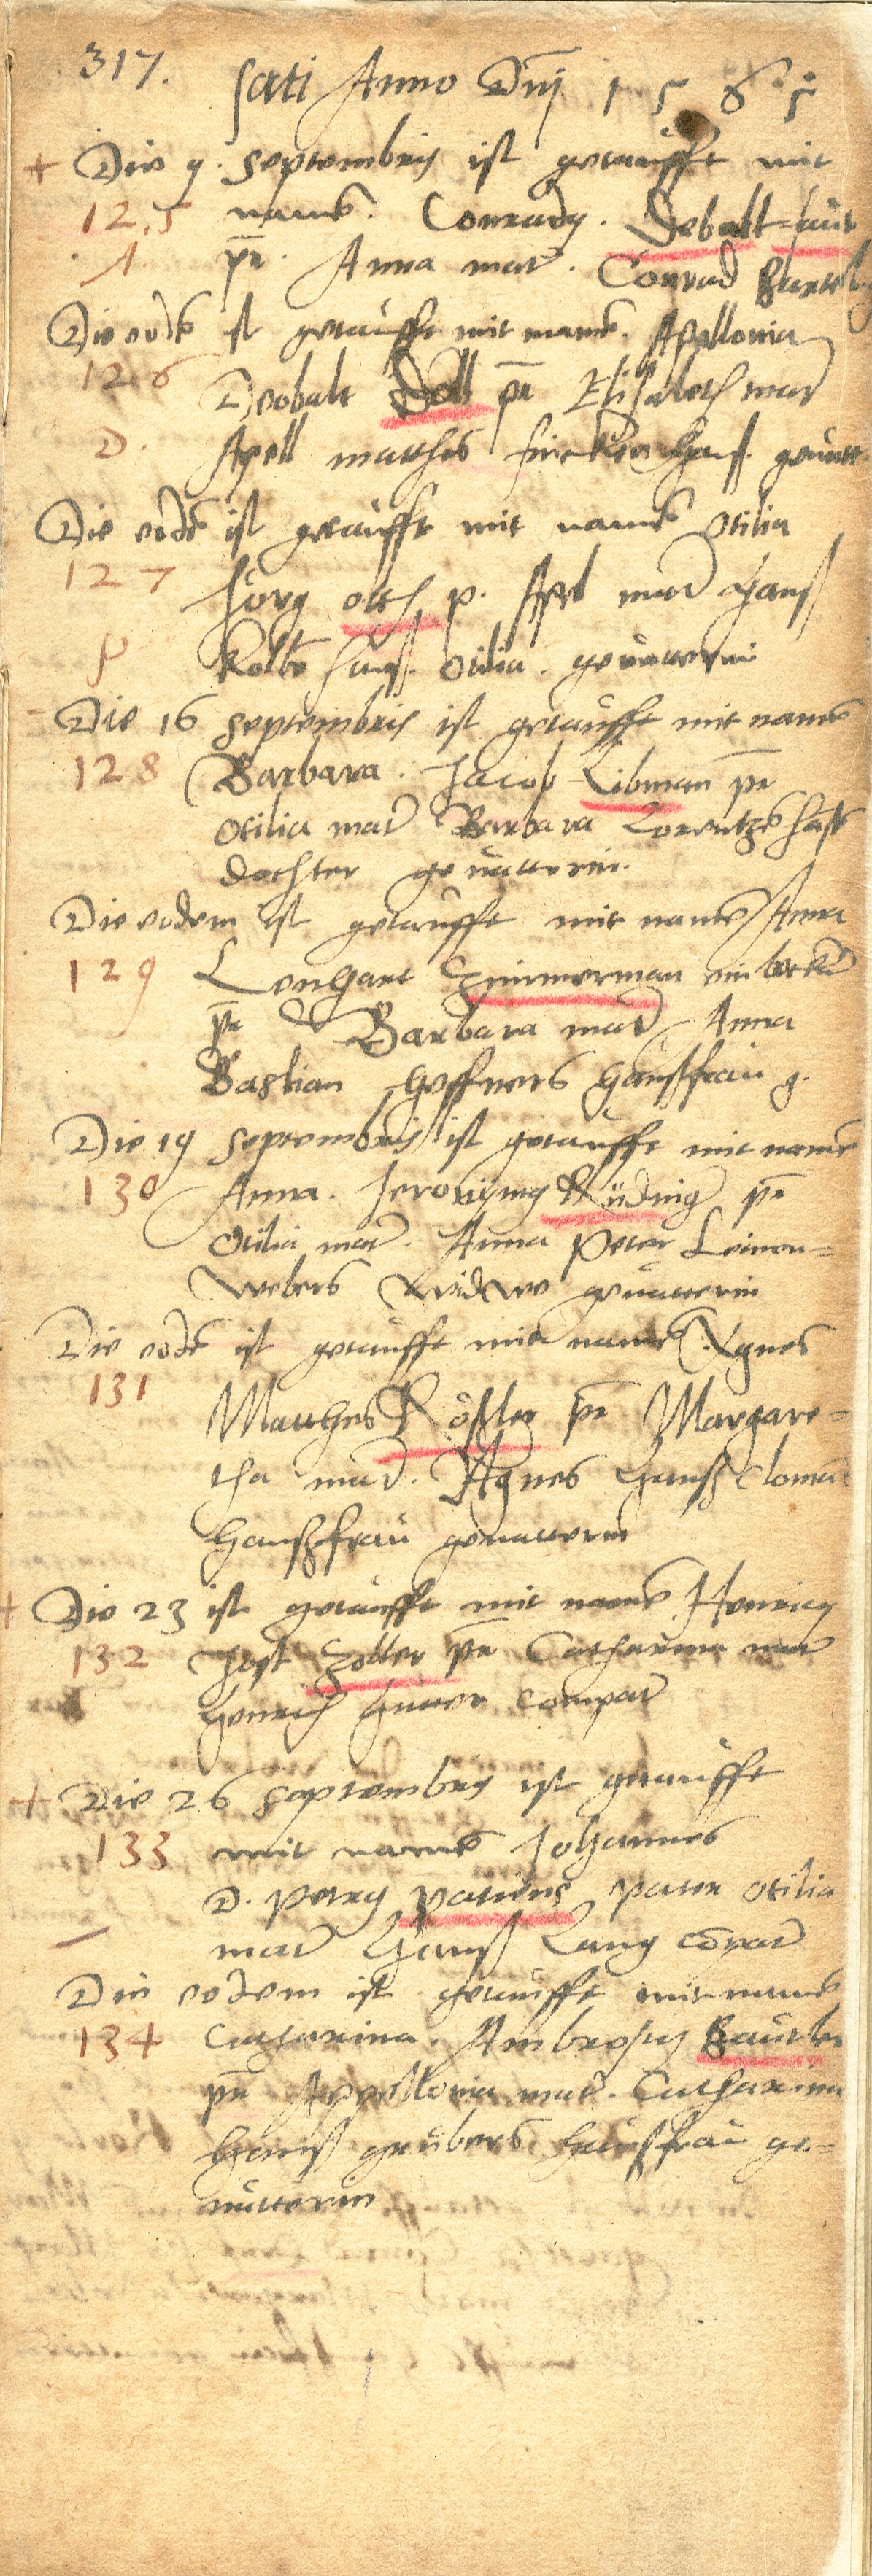 317.
sati Anno Dnj 1565
+ Die 9. Septembris ist getaufft mit
125 name. Conrady. Debalt faut
A. pr. Anna mat. Conrad
Die eode ist getaufft mit name. Apellonia
126 Deobalt Doll pr Elisabeth mat
D. Apell matthes haus. geuatt.
Die eode ist getaufft mit name Otilia
127 Jorg otth p. Apel mat Hans
Kolbe haus. Otilia. geuatterin
Die 16 Septembris ist getaufft mit name
128 Barbara. Jacob Libman pr
Otilia mat Barbara Lorentze
dochter geuatterin.
Die eodem ist getaufft mit name Anna
129 Lenhart Zimmerman ein becker
pr Barbara mat Anna
Bastian Heffners Hausfrau g.
Die 19 Septembris ist getaufft mit name
130 Anna. Jeronimy Rüdnig pr
Otilia mat. Anna Peter Leinen=
webers Widwe geuatterin
Die eode ist getaufft mit name Agnes
131
Matthes Rösler pr Margare=
tha mat. Agnes Hanß
Hanßfrau geuatterin
+ Die 23 ist getaufft mit name Henricy
132 Jost Zoller pr Catharina mat
Henrich compat
+ Die 26 Septembris ist getaufft
133 mit name Johannes
D. Petry patiens pater Otilia
mat Hanß Lang copat
Die eodem ist getaufft mit name
134 Catharina. Ambrosy
pr Appellonia mat. Catharina
Hanß grubers hausfrau ge=
uatterin